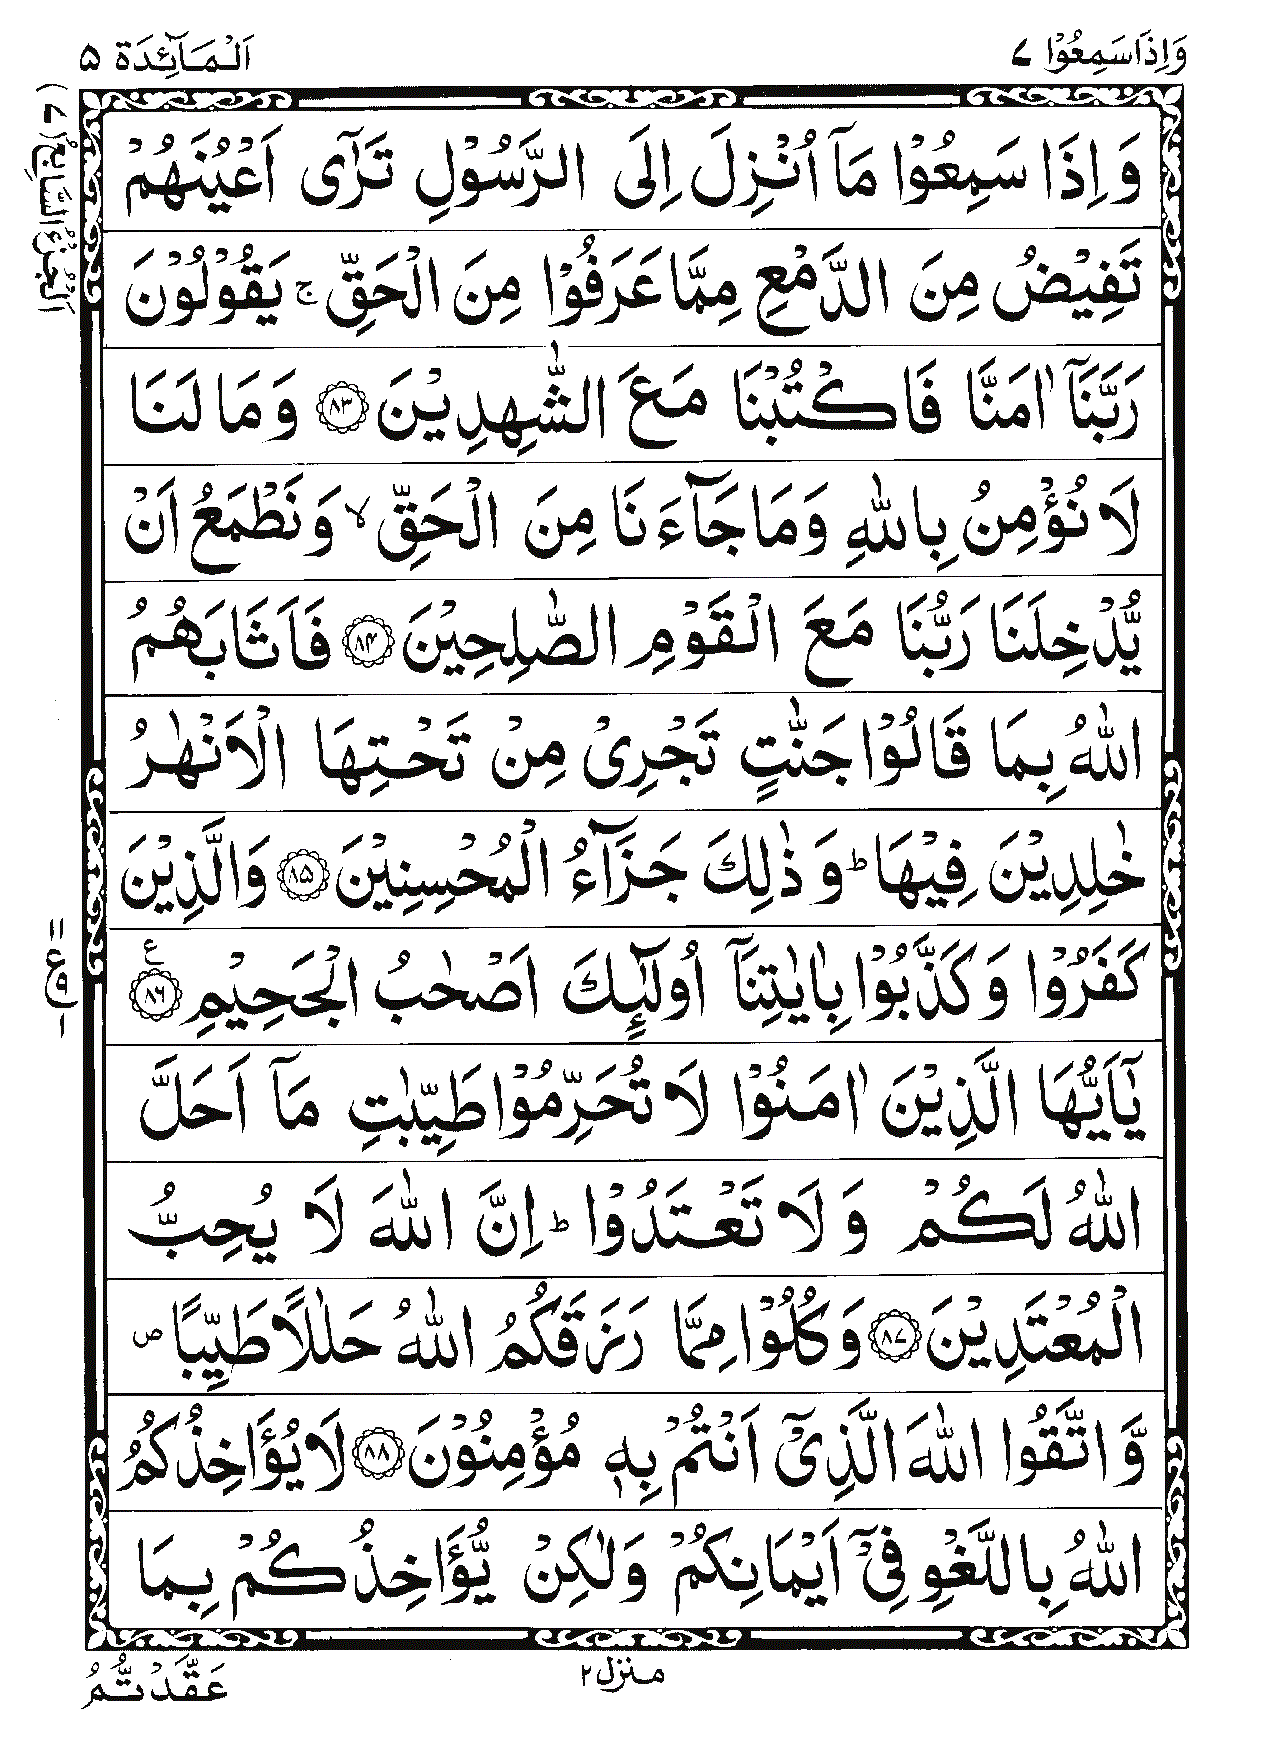 وَاِذَا سَمِعُوْا ٧
اَلْمَآئِدَة ٥
اَلْجُزْءُ السَّابِعُ (٧)
وَاِذَا سَمِعُوْا مَآ اُنْزِلَ اِلَى الرَّسُوْلِ تَرٰٓى اَعْيُنَهُمْ
تَفِيْضُ مِنَ الدَّمْعِ مِمَّا عَرَفُوْا مِنَ الْحَقِّ ۚ يَقُوْلُوْنَ
رَبَّنَآ اٰمَنَّا فَاكْتُبْنَا مَعَ الشّٰهِدِيْنَ ﴿٨٣﴾ وَمَا لَنَا
لَا نُؤْمِنُ بِاللّٰهِ وَمَا جَآءَنَا مِنَ الْحَقِّ ۙ وَنَطْمَعُ اَنْ
يُّدْخِلَنَا رَبُّنَا مَعَ الْقَوْمِ الصّٰلِحِيْنَ ﴿٨٤﴾ فَاَثَابَهُمُ
اللّٰهُ بِمَا قَالُوْا جَنّٰتٍ تَجْرِىْ مِنْ تَحْتِهَا الْاَنْهٰرُ
خٰلِدِيْنَ فِيْهَا ؕ وَذٰلِكَ جَزَآءُ الْمُحْسِنِيْنَ ﴿٨٥﴾ وَالَّذِيْنَ
كَفَرُوْا وَكَذَّبُوْا بِاٰيٰتِنَآ اُولٰٓئِكَ اَصْحٰبُ الْجَحِيْمِ ﴿٨٦﴾ ع
يٰٓاَيُّهَا الَّذِيْنَ اٰمَنُوْا لَا تُحَرِّمُوْا طَيِّبٰتِ مَآ اَحَلَّ
اللّٰهُ لَكُمْ وَلَا تَعْتَدُوْا ؕ اِنَّ اللّٰهَ لَا يُحِبُّ
الْمُعْتَدِيْنَ ﴿٨٧﴾ وَكُلُوْا مِمَّا رَزَقَكُمُ اللّٰهُ حَلٰلًا طَيِّبًا ص
وَّاتَّقُوا اللّٰهَ الَّذِىْٓ اَنْتُمْ بِهٖ مُؤْمِنُوْنَ ﴿٨٨﴾ لَا يُؤَاخِذُكُمُ
اللّٰهُ بِاللَّغْوِ فِىْٓ اَيْمَانِكُمْ وَلٰكِنْ يُّؤَاخِذُكُمْ بِمَا
١١
ع ٩
١
منزل ٢
عَقَّدْتُّمُ